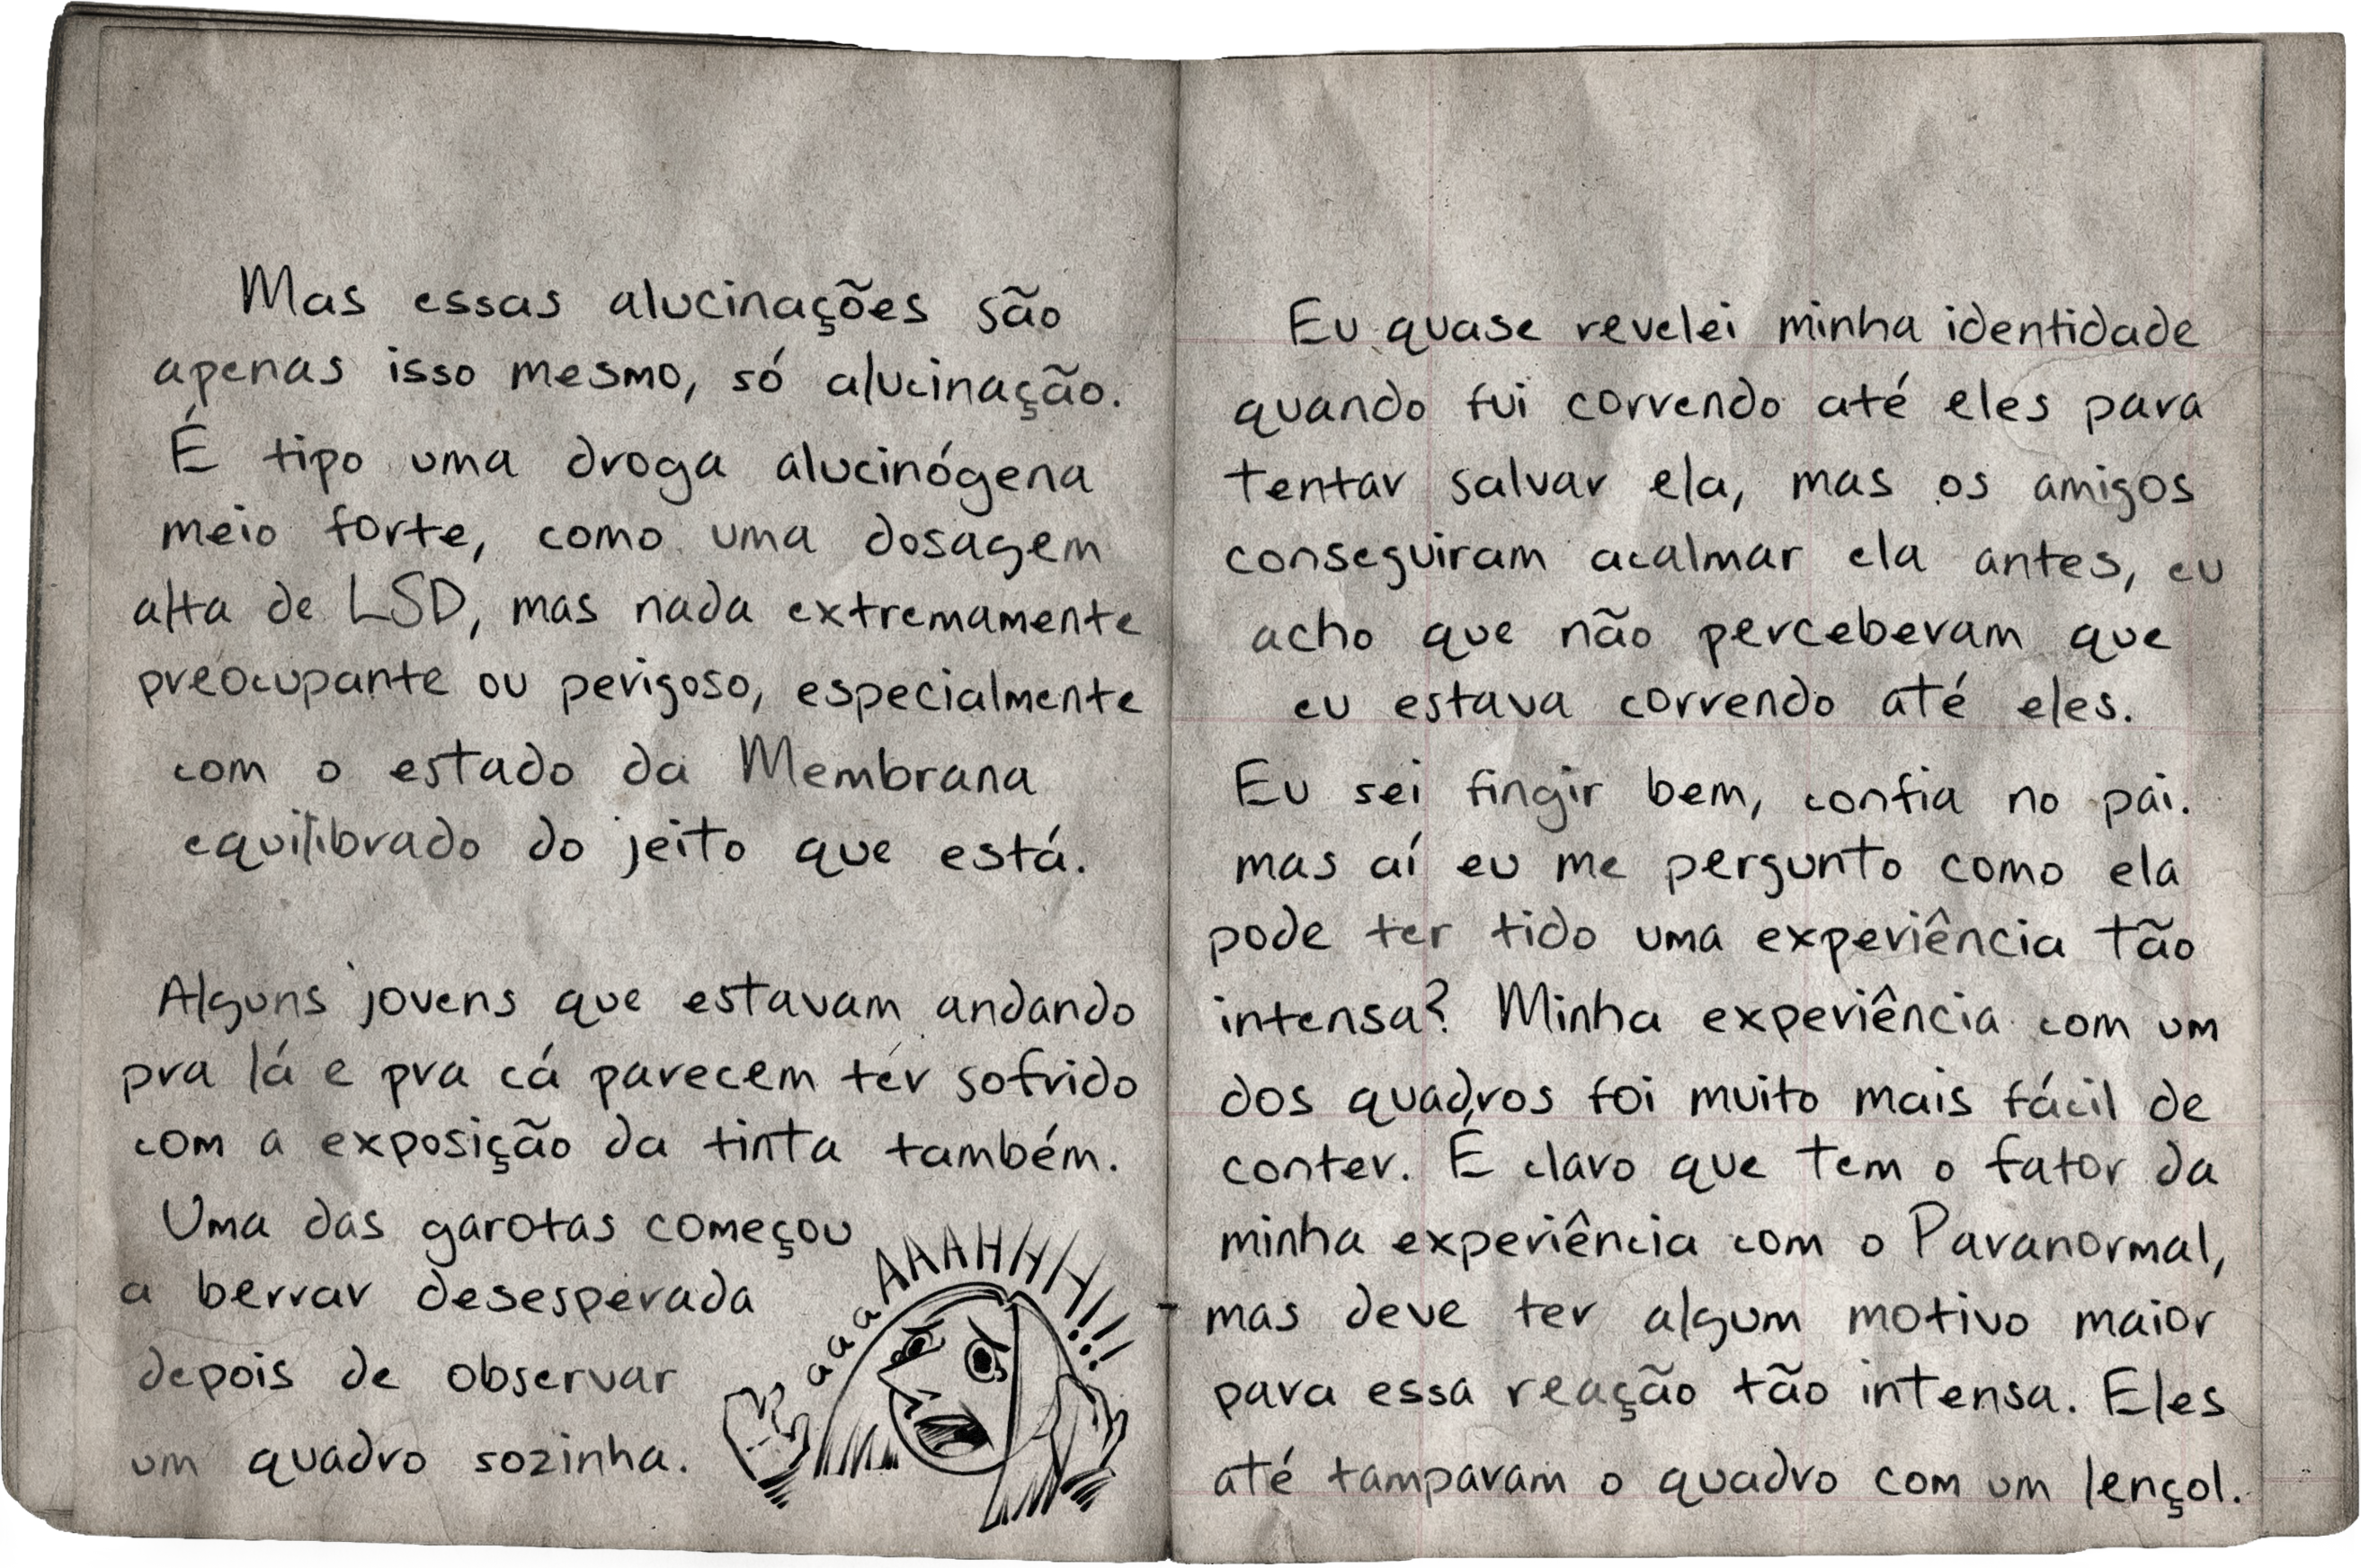 Mas essas alucinações são
apenas isso mesmo, só alucinação.
É tipo uma droga alucinógena
meio forte, como uma dosagem
alta de LSD, mas nada extremamente
preocupante ou perigoso, especialmente
com o estado da Membrana
equilibrado do jeito que está.
Alguns jovens que estavam andando
pra lá e pra cá parecem ter sofrido
com a exposição da tinta também.
Uma das garotas começou
a berrar desesperada
depois de observar
um quadro sozinha.
aaaAAAHHHH!!!
Eu quase revelei minha identidade
quando fui correndo até eles para
tentar salvar ela, mas os amigos
conseguiram acalmar ela antes, eu
acho que não perceberam que
eu estava correndo até eles.
Eu sei fingir bem, confia no pai.
mas aí eu me pergunto como ela
pode ter tido uma experiência tão
intensa? Minha experiência com um
dos quadros foi muito mais fácil de
conter. É claro que tem o fator da
minha experiência com o Paranormal,
mas deve ter algum motivo maior
para essa reação tão intensa. Eles
até tamparam o quadro com um lençol.